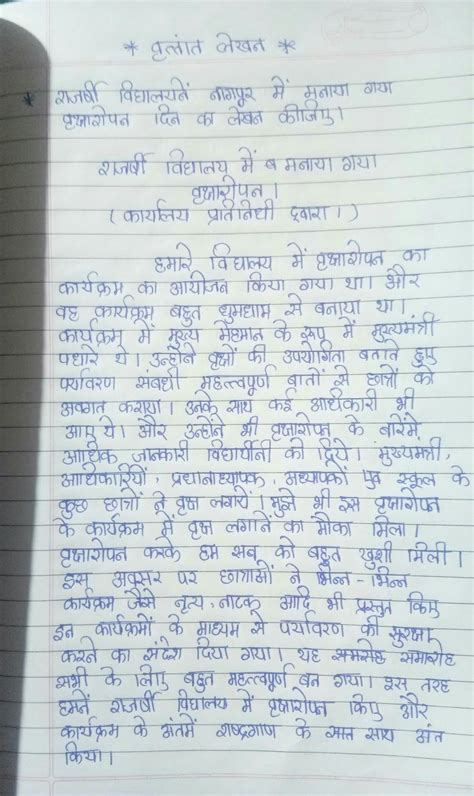 * वृत्तांत लेखन *
* राजर्षी विद्यालयनें नागपूर में मनाया गया
वृक्षारोपन दिन का लेखन कीजिए।
राजर्षी विद्यालय में मनाया गया
वृक्षारोपन।
(कार्यालय प्रतिनिधी द्वारा।)
हमारे विद्यालय में वृक्षारोपन का
कार्यक्रम का आयोजन किया गया था। और
वह कार्यक्रम बहुत धुमधाम से बनाया था।
कार्यक्रम में मुख्य मेहमान के रूप में मुख्यमंत्री
पधारे थे। उन्होंने वृक्षों की उपयोगिता बताते हुए
पर्यावरण संबधी महत्त्वपूर्ण बातों से छात्रों को
अवगत कराया। उनके साथ कई अधिकारी भी
आए थे। और उन्होंने भी वृक्षारोपन के बारेमें
आधिक जानकारी विद्यार्थीनी को दिये। मुख्यमंत्री,
अधिकारियों, प्रधानाध्यापक, अध्यापकों एवं स्कूल के
कुछ छात्रों ने वृक्ष लगायें। मुझे भी इस वृक्षारोपन
के कार्यक्रम में वृक्ष लगाने का मौका मिला।
वृक्षारोपन करके हम सब को बहुत खुशी मिली।
इस अवसर पर छात्राओं ने भिन्न-भिन्न
कार्यक्रम जैसे नृत्य, नाटक आदि भी प्रस्तुत किए
इन कार्यक्रमों के माध्यम से पर्यावरण की सुरक्षा
करने का संदेश दिया गया। यह समारोह
सभी के लिए बहुत महत्त्वपूर्ण बन गया। इस तरह
हमनें राजर्षी विद्यालय में वृक्षारोपन किए और
कार्यक्रम के अंतमें राष्ट्रगाण के साथ अंत
किया।